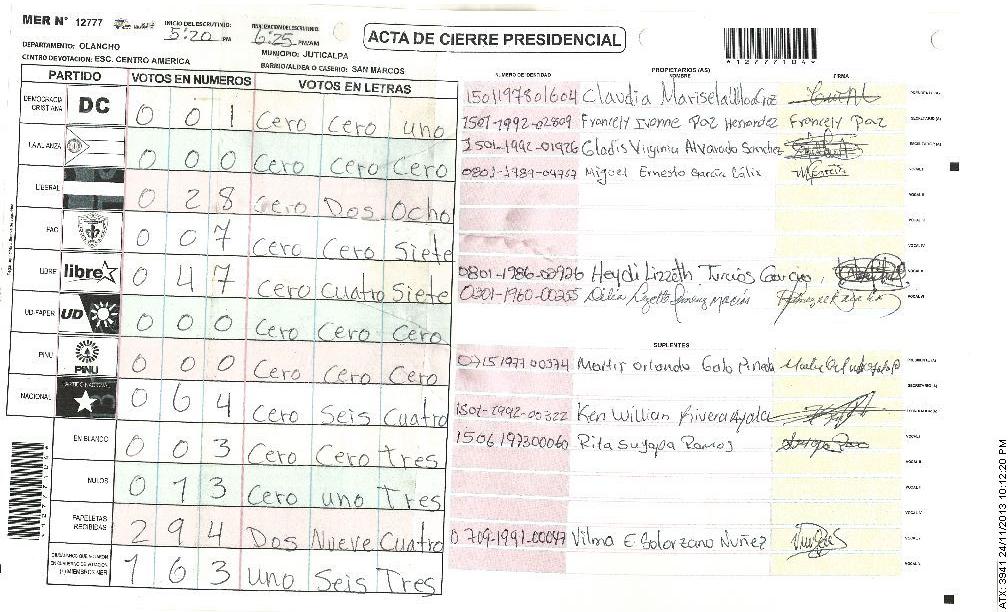 MER N° 12777
INICIO DEL ESCRUTINIO: 5:20 PM
FINALIZACION DEL ESCRUTINIO: 6:25 PM/AM
ACTA DE CIERRE PRESIDENCIAL
*12777104*
DEPARTAMENTO: OLANCHO
MUNICIPIO: JUTICALPA
CENTRO DE VOTACION: ESC. CENTRO AMERICA
BARRIO/ALDEA O CASERIO: SAN MARCOS
PARTIDO VOTOS EN NUMEROS VOTOS EN LETRAS
DEMOCRACIA CRISTIANA DC 0 0 1 Cero Cero uno
LA ALIANZA 0 0 0 Cero Cero Cero
LIBERAL 0 2 8 Cero Dos Ocho
PAC 0 0 7 Cero Cero Siete
LIBRE libre 0 4 7 Cero Cuatro Siete
UD-FAPER UD 0 0 0 Cero Cero Cero
PINU PINU 0 0 0 Cero Cero Cero
NACIONAL PARTIDO NACIONAL 0 6 4 Cero Seis Cuatro
EN BLANCO 0 0 3 Cero Cero tres
NULOS 0 1 3 Cero uno Tres
PAPELETAS RECIBIDAS 2 9 4 Dos Nueve Cuatro
CIUDADANOS QUE VOTARON EN CUADERNO DE VOTACION (+) MIEMBROS MER 1 6 3 uno Seis Tres
PROPIETARIOS (AS)
NUMERO DE IDENTIDAD NOMBRE FIRMA
1501197801604 Claudia Marisela PRESIDENTE (A)
1501-1992-02809 Francely Ivonne Paz Hernandez Francely Paz SECRETARIO (A)
1501-1992-01926 Gladis Virginia Alvarado Sanchez ESCRUTADOR (A)
Miguel Ernesto García Célix VOCAL I
VOCAL II
VOCAL III
VOCAL IV
0801-1986-02926 Heydi Lizzeth Turcios VOCAL V
0301-1960-00255 VOCAL VI
SUPLENTES
0715197700374 Martir Orlando Galo Pineda PRESIDENTE (A)
SECRETARIO (A)
1501-1992-00322 Ken Willian Rivera Ayala ESCRUTADOR (A)
1506197300060 Rita Suyapa Ramos VOCAL I
VOCAL II
VOCAL III
VOCAL IV
0709-1991-00047 Vilma E Solorzano Nuñez VOCAL V
VOCAL VI
ATX: 3941 24/11/2013 10:12:20 PM